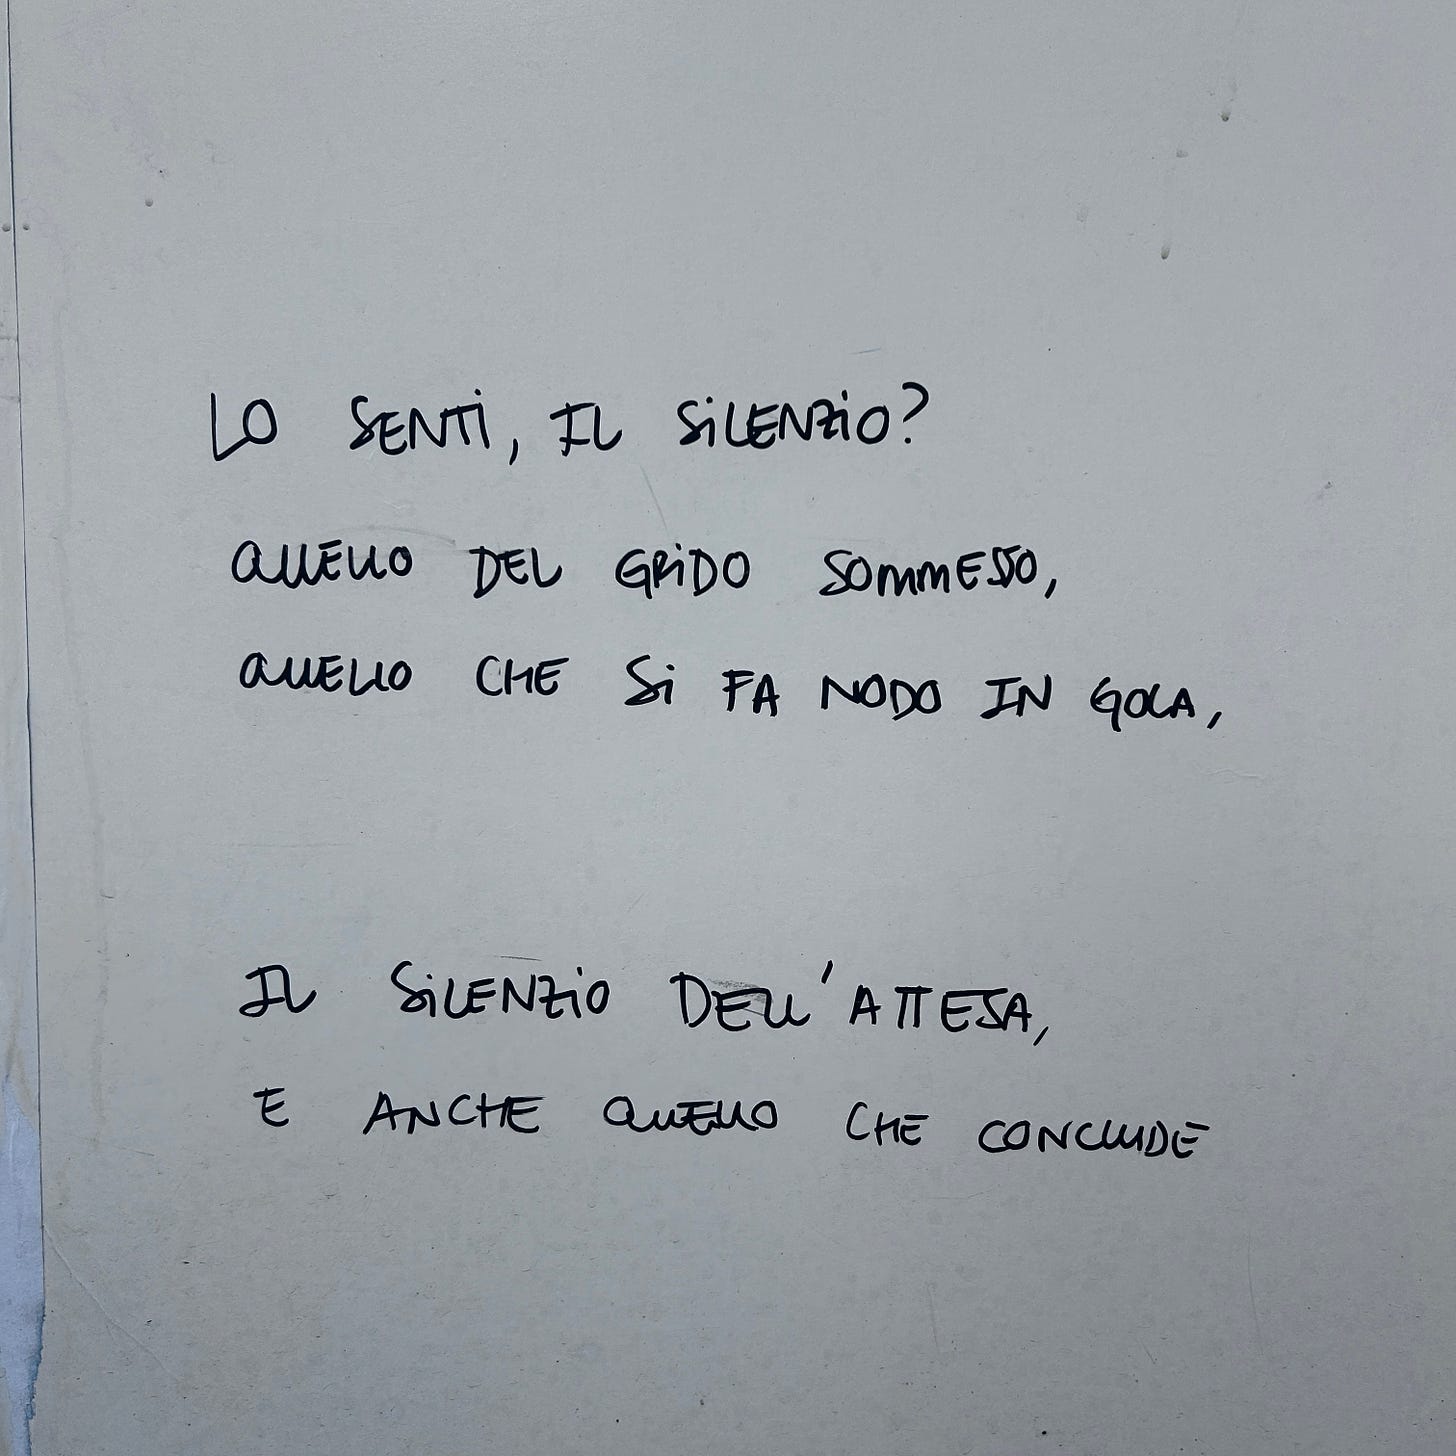 LO SENTI, IL SILENZIO?
QUELLO DEL GRIDO SOMMESSO,
QUELLO CHE SI FA NODO IN GOLA,
IL SILENZIO DELL'ATTESA,
E ANCHE QUELLO CHE CONCLUDE